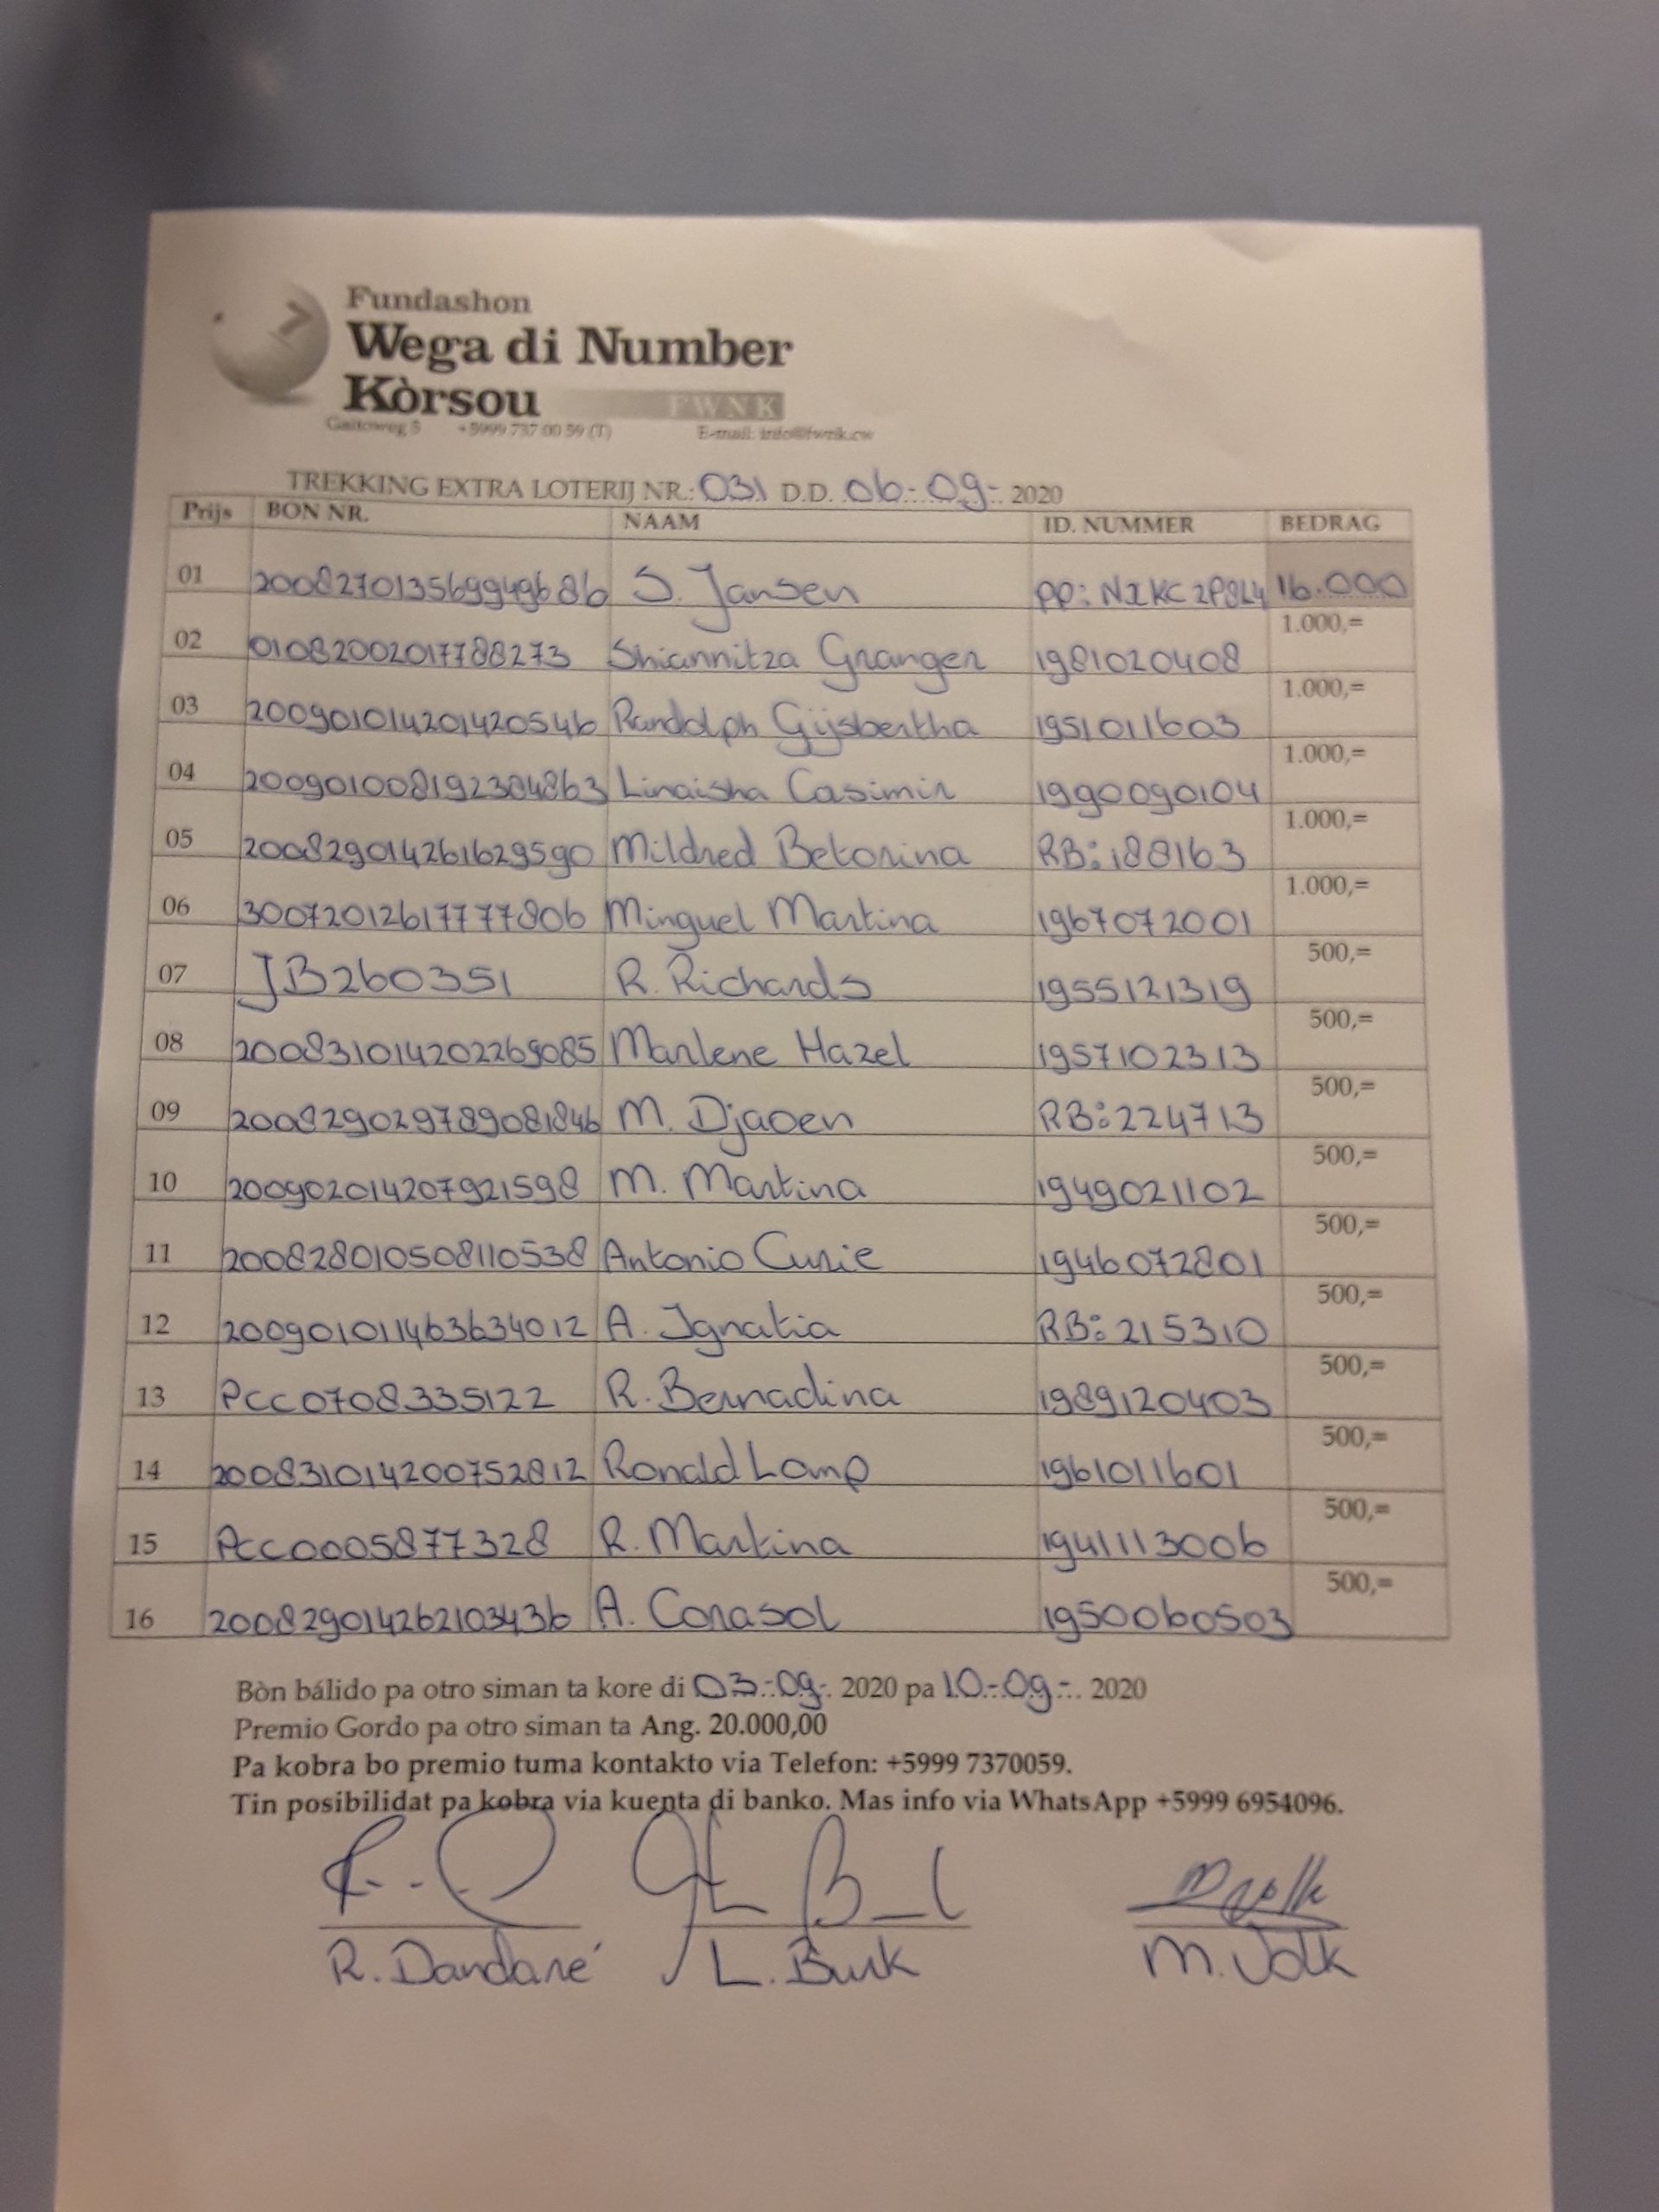 7
Fundashon
Wega di Number
Kòrsou
FWNK
Gaitoweg 5 +5999 737 00 59 (T) E-mail: info@fwnk.cw
TREKKING EXTRA LOTERIJ NR.: 031 D.D. 06-09- 2020
Prijs BON NR. NAAM ID. NUMMER BEDRAG
01 2008270135699949686 S. Jansen PP: NIKC2P8L4 16.000
02 0108200201778​8273 Shiannitza Granger 1981020408 1.000,=
03 2009010142014205​46 Randolph Gijsbertha 1951011603 1.000,=
04 2009010081923848​63 Linaisha Casimir 1990090104 1.000,=
05 2008290142616295​90 Mildred Betorina RB: 188163 1.000,=
06 30072012617777806 Minguel Martina 1967072001 1.000,=
07 JB260351 R. Richards 1955121319 500,=
08 200831014202269085 Marlene Hazel 1957102313 500,=
09 2008290297890818​46 M. Djaoen RB: 224713 500,=
10 200902014207921598 M. Martina 1949021102 500,=
11 200828010508110538 Antonio Curie 1946072801 500,=
12 200901011463634012 A. Ignatia RB: 215310 500,=
13 PCC0708335122 R. Bernadina 1989120403 500,=
14 200831014200752812 Ronald Lamp 1961011601 500,=
15 PCC0005877328 R. Martina 1941113006 500,=
16 200829014262103436 A. Conasol 1950060503 500,=
Bòn bálido pa otro siman ta kore di 03-09-. 2020 pa 10-09-. 2020
Premio Gordo pa otro siman ta Ang. 20.000,00
Pa kobra bo premio tuma kontakto via Telefon: +5999 7370059.
Tin posibilidat pa kobra via kuenta di banko. Mas info via WhatsApp +5999 6954096.
R. Dandaré L. Burk M. Volk